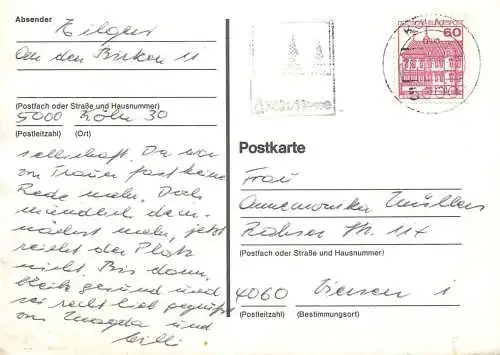 Absender
Hilger
An den Birken 11
(Postfach oder Straße und Hausnummer)
5000 Köln 30
(Postleitzahl) (Ort)
sellschaft. Da war
von Trauer fast keine
Rede mehr. Doch
mündlich dem-
nächst mehr, jetzt
reicht der Platz
nicht. Bis dann,
bleibt gesund und
sei recht lieb gegrüßt
von Magda und
Willi
DEUTSCHE BUNDESPOST
60
Postkarte
Frau
Annemonika Müllers
Str. 114
(Postfach oder Straße und Hausnummer)
4060 Viersen 1
(Postleitzahl) (Bestimmungsort)